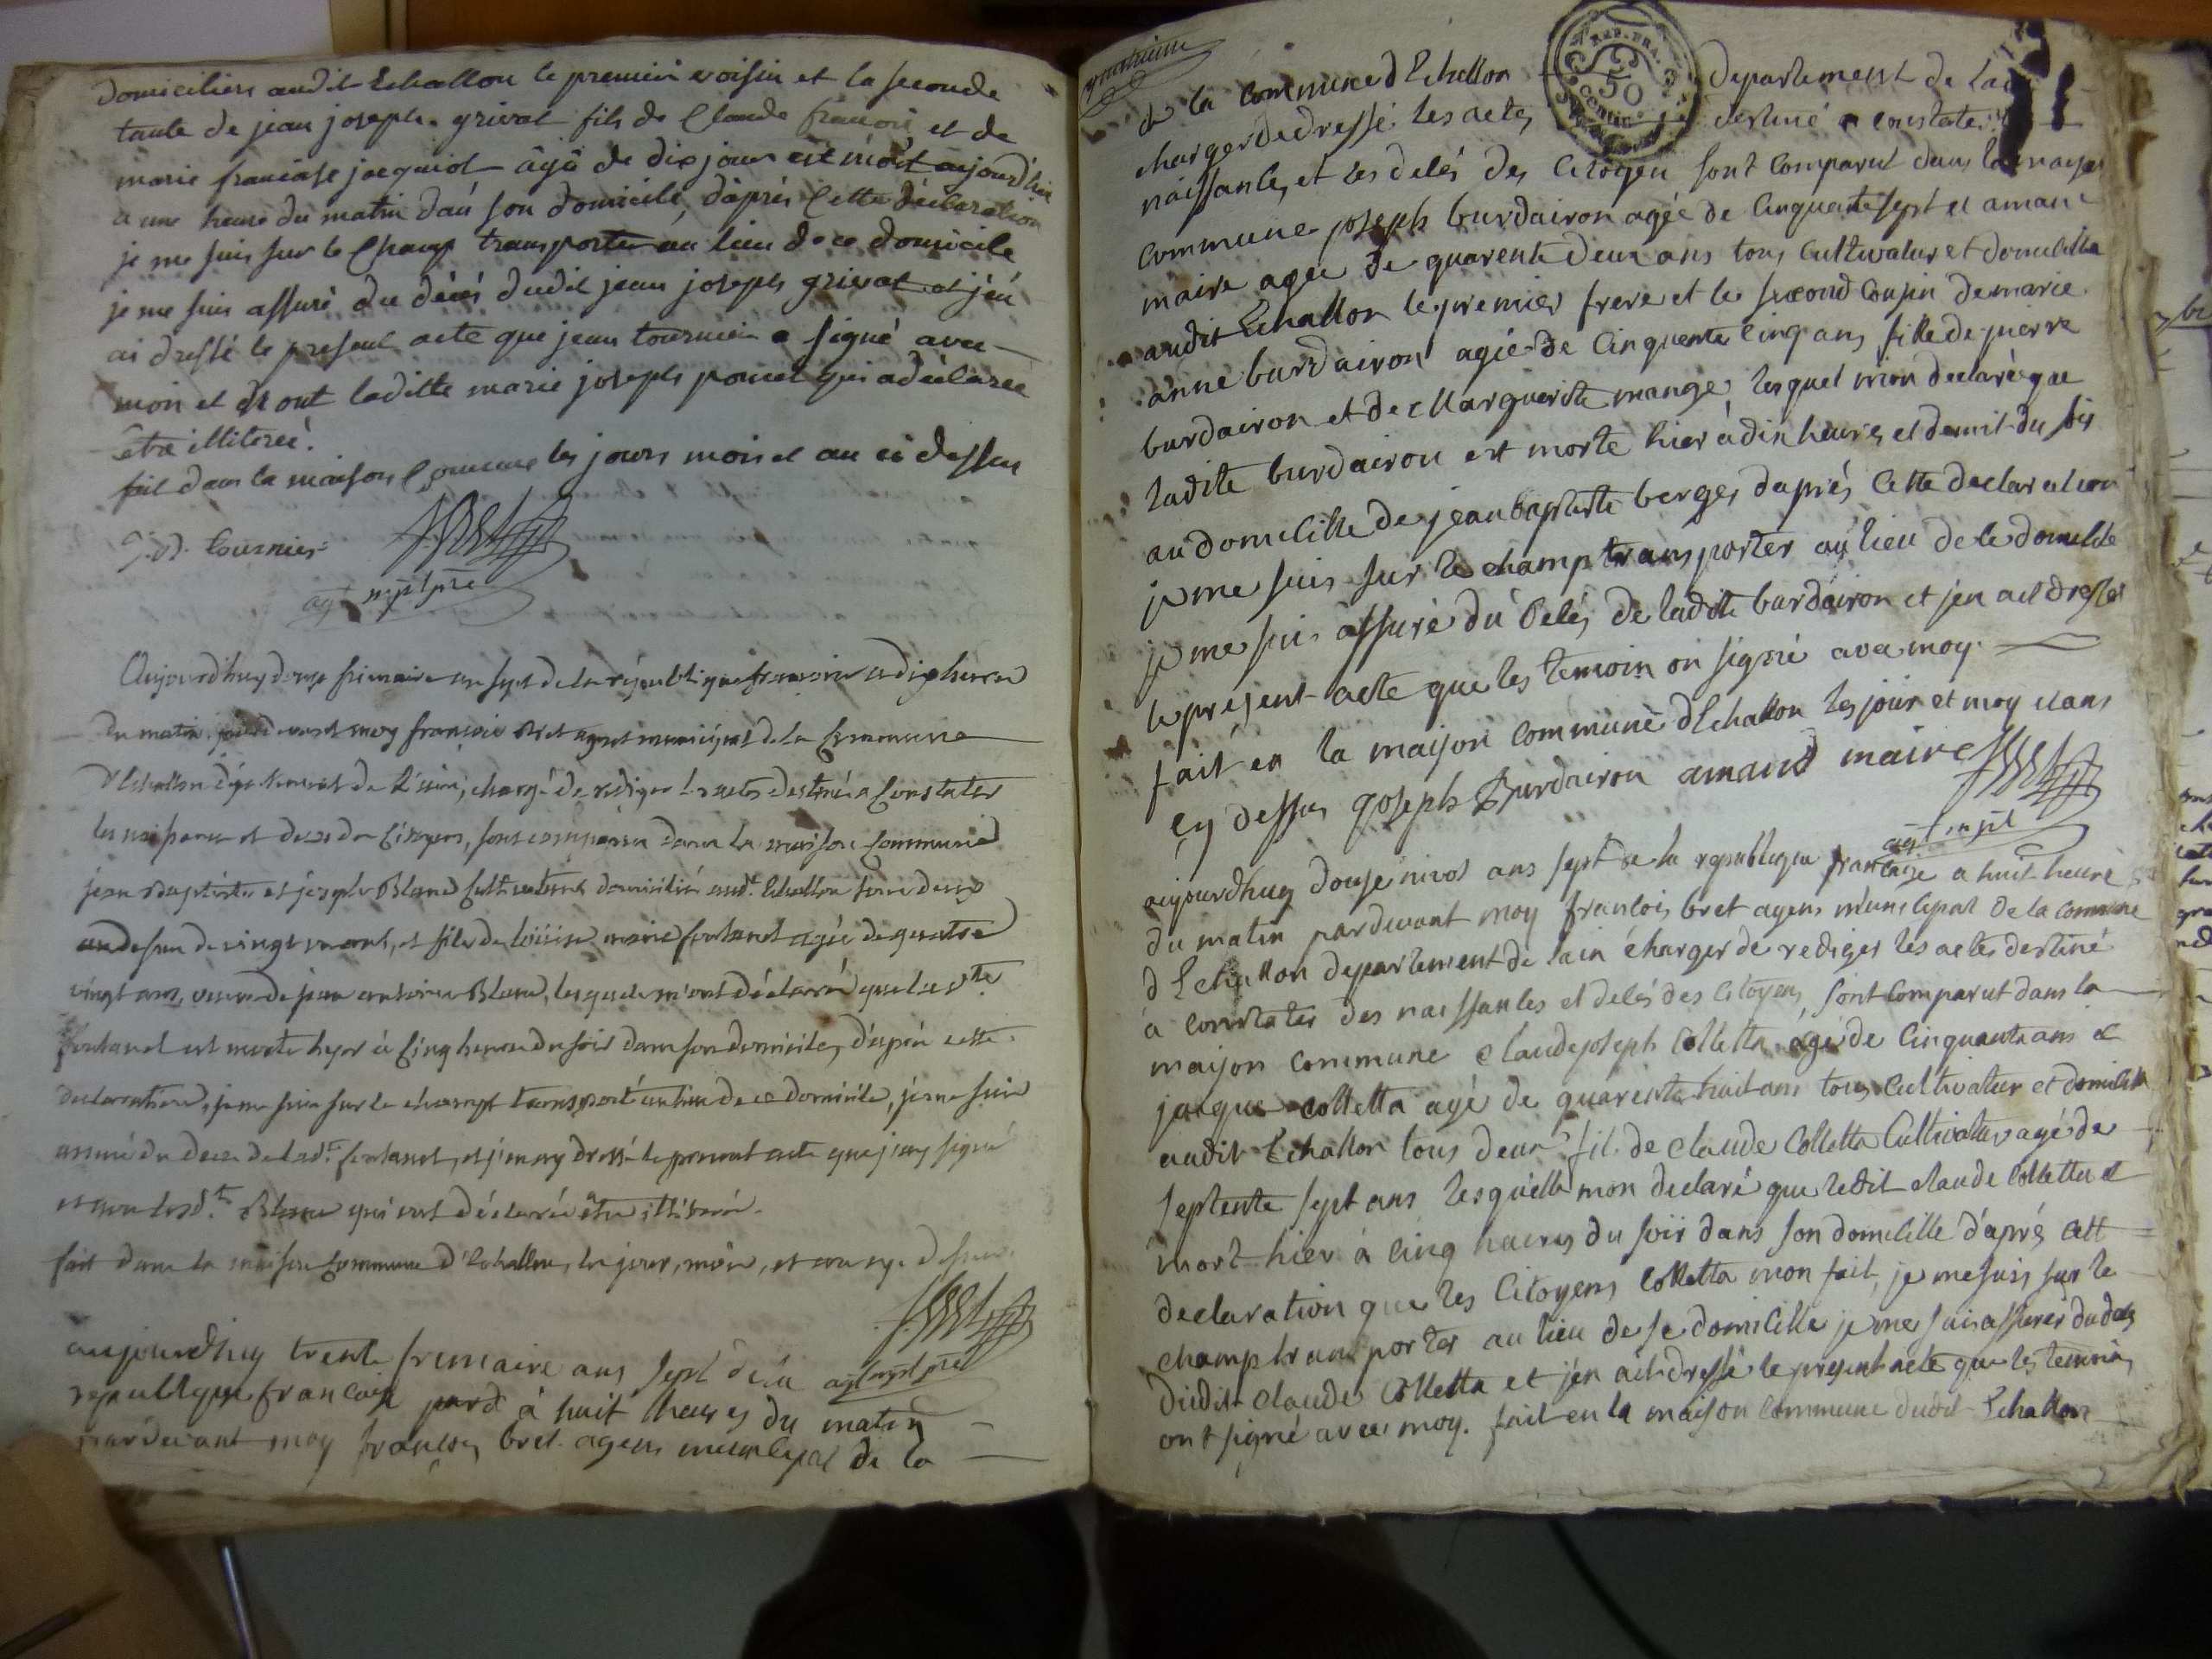 domiciliers audit Echallon le premier voisin et la seconde
tante de jean joseph grivat fils de Claude francois et de
marie francoise jacquiot âgé de dix jours est mort aujourd'hui
a une heure du matin dan son domicile, daprés Cette déclaration
je me suis sur le Champ transporter au lieu de ce domicile
je me suis assuré du décés dudit jean joseph grivat et j'en
ai dressé le present acte que jean tournier a signé avec
moi et dont laditte marie joseph poncet qui a déclaree
etre illiteree.
fait dans la maison Commune les jours mois et an ci dessus
tournier
agt mpl
Aujourdhuy douze frimaire an sept de la république francoise a dix heures
du matin, pardevant moy francois Bret agent municipal de la Commune
d'Echallon département de l'ain, chargé de rediger les actes destinés a Constater
les naissances et deces des Citoyens, sont comparu dans la maison Commune
jean Baptiste et joseph Blanc Cultivateurs domiciliés audt. Echallon
de vingt un ans, et fils de Louise marie agée de quatre
vingt ans, veuve de jean antoine Blanc, lesquels m'ont déclaré que lad.te
est morte hyer à Cinq heures du soir dans son domicile, d'après cette
declaration, je me suis sur le champt transporté au lieu de ce domicile, je me suis
assuré du deces de lad.te et j'en ay dressé le present acte que j'ay signé
et non lesd.ts Blanc qui ont déclaré être illiteré.
fait dans la maison Commune d'Echallon, les jour, mois, et an cy-dessus.
aujourdhuy trente frimaire ans sept de la agt mpl
republique francaise pard à huit heures du matin
pardevant moy francois bret agens municipal de la
de la commune d Echallon departement de lain
charger de dressé les actes destiné a constater
naissances et les delés des Citoyen sont comparut dans la maison
commune joseph burdairon agée de Cinquante sept et amand
maire agée de quarente deux ans tous cultivatur et domicilla
audit Echallon le premier frere et le second cousin de marie
anne burdairon agée de Cinquente Cinq ans fille de pierre
burdairon et de Marguerite mange, lesquel mon declaré que
ladite burdairon est morte hier à dix heures et demit du soir
au domicille de jean baptiste berger daprés Cette declaration
je me suis sur le champ transporter au lieu de ce domicile
je me suis assuré du delés de ladite burdairon et jen ait dresser
le present acte que les temoin on signé avec moy.
fait en la maison commune dEchallon les jour et moy et ans
cy dessus joseph Burdairon amand maire
agt mpl
aujourdhuy douse nivos ans sept de la republique francaise a huit heure
du matin pardevant moy francois bret agens municipal de la commune
d Echallon departement de lain charger de rediger les actes destiné
à constater des naissances et delés des Citoyens sont comparut dans la
maison commune claude joseph Colletta âgé de Cinquante ans et
jacque colletta agé de quarente huit ans tous cultivatur et domicilla
audit Echallon tous deux fils de claude Colletta Cultivateur agé de
septente sept ans lesquella mon declaré que ledit claude Colletta et
mort hier à Cinq heures du soir dans son domicille d'aprés cett
declaration que les Citoyens Colletta mon fait, je me suis sur le
champ transporter au lieu de se domicille je me suis assurer du delés
dudit claude Colletta et jen ait dressé le present acte que les temoin
ont signé avec moy. fait en la maison commune dudit Echallon